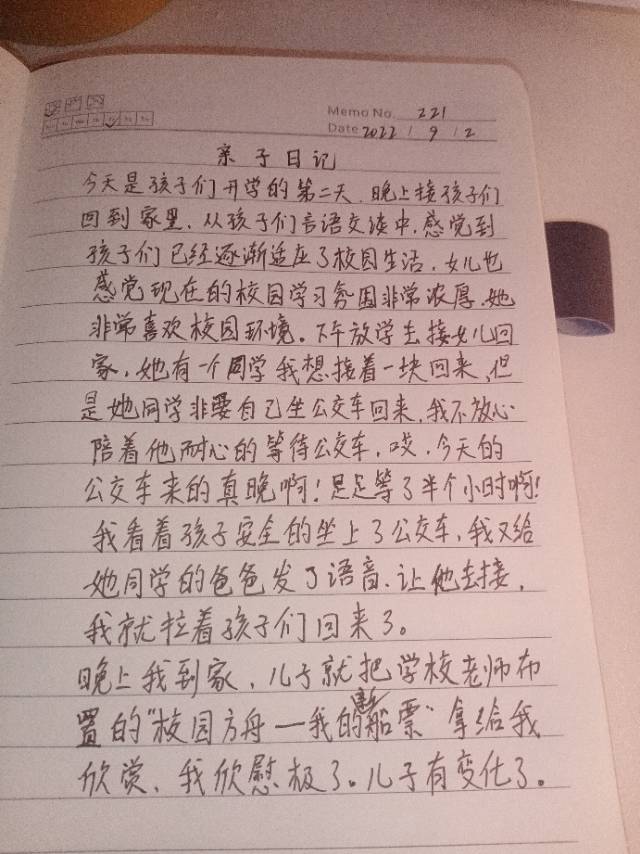 Memo No. 221
Date 2022 / 9 / 2
亲子日记
今天是孩子们开学的第二天,晚上接孩子们
回到家里,从孩子们言语交谈中,感觉到
孩子们已经逐渐适应了校园生活,女儿也
感觉现在的校园学习氛围非常浓厚,她
非常喜欢校园环境。下午放学去接女儿回
家,她有一个同学我想接着一块回来,但
是她同学非要自己坐公交车回来,我不放心
陪着他耐心的等待公交车,哎,今天的
公交车来的真晚啊!足足等了半个小时啊!
我看着孩子安全的坐上了公交车,我又给
她同学的爸爸发了语音,让他去接,
我就拉着孩子们回来了。
晚上我到家,儿子就把学校老师布
置的"校园方舟—我的新船票"拿给我
欣赏,我欣慰极了。儿子有变化了。